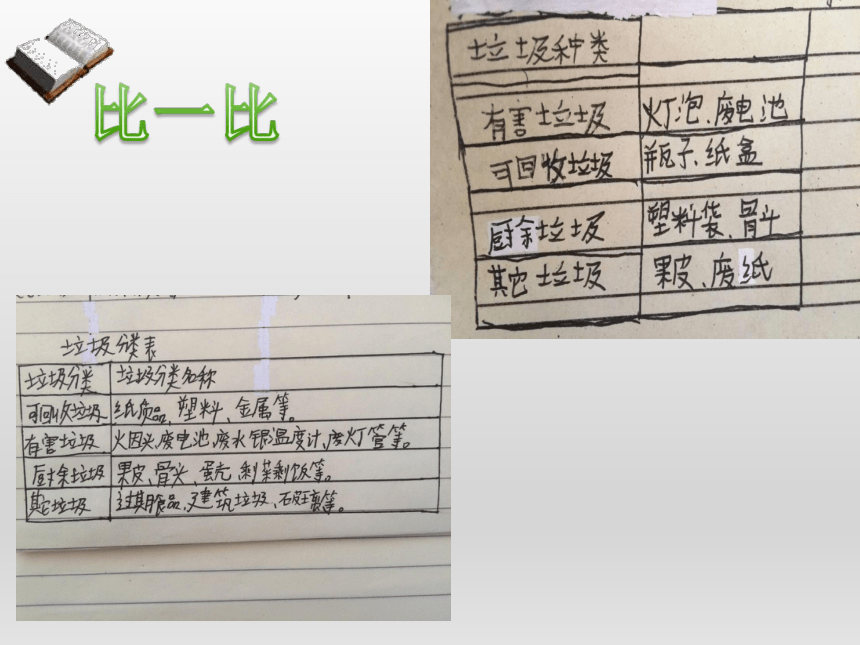 比一比
垃圾种类
有害垃圾 灯泡、废电池
可回收垃圾 瓶子、纸盒
厨余垃圾 塑料袋、骨头
其它垃圾 果皮、废纸
垃圾分类表
垃圾分类 垃圾分类名称
可回收垃圾 纸质品、塑料、金属等。
有害垃圾 火因头、废电池、废水银温度计、废灯管等。
厨余垃圾 果皮、骨头、蛋壳、剩菜剩饭等。
其它垃圾 过期食品、建筑垃圾、等。